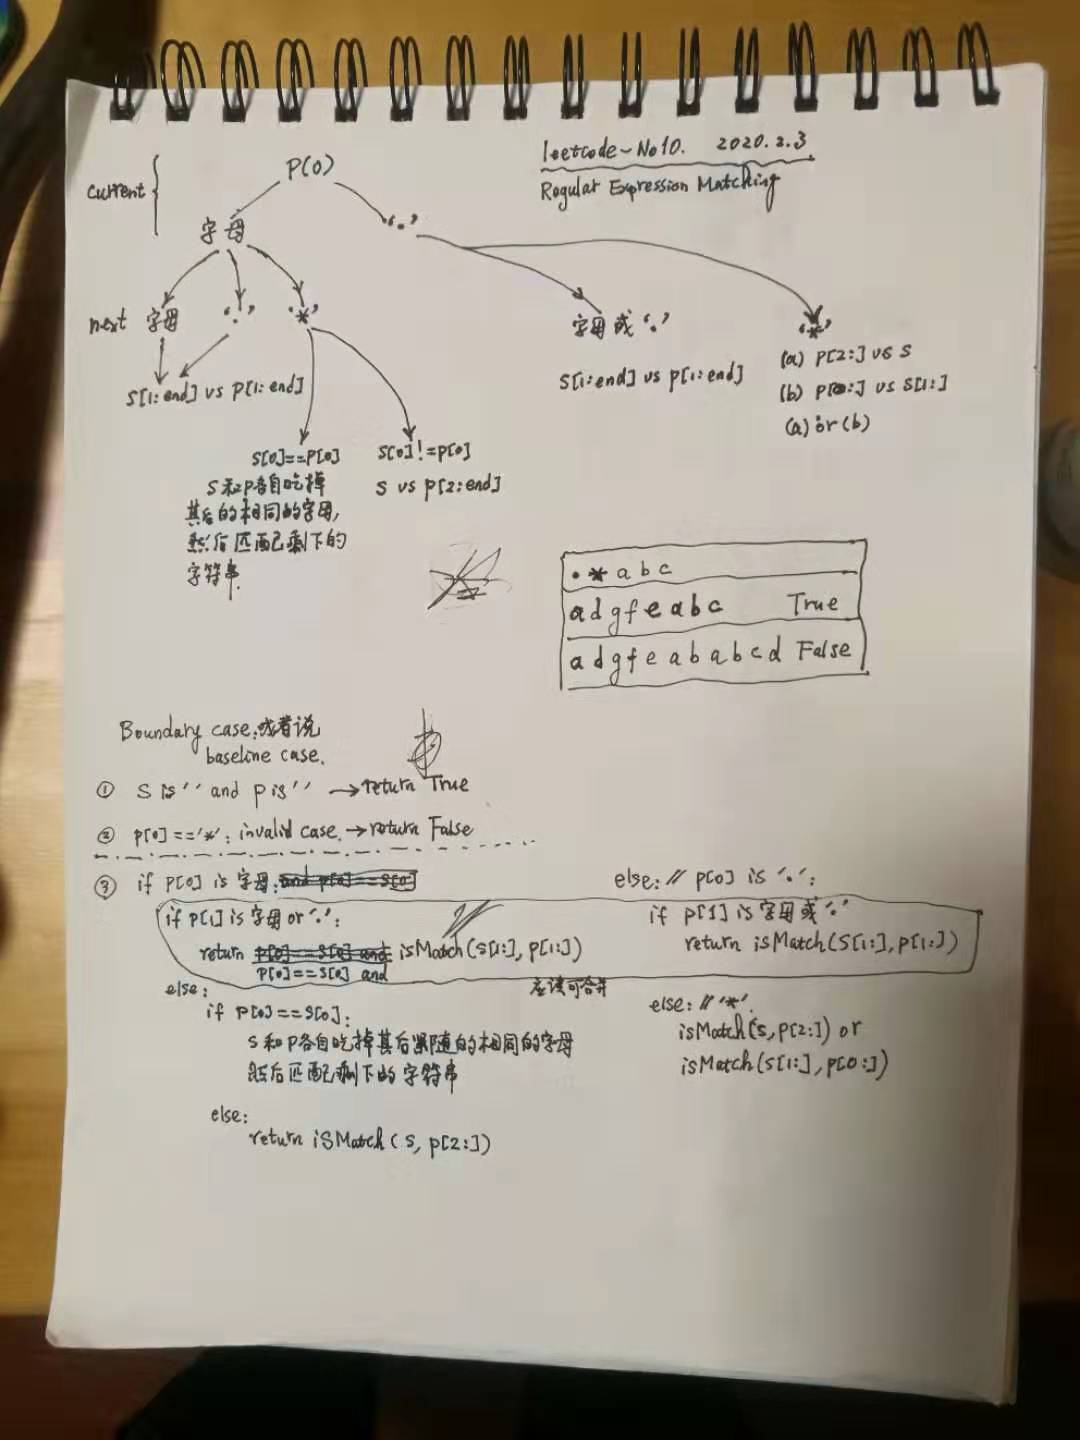 leetcode-No10. 2020.2.3
Regular Expression Matching
current
P(0)
字母 '.'
next 字母 '.' '*'
字母或'.' '*'
S[1:end] vs P[1:end]
S[1:end] vs P[1:end]
(a) P[2:] vs S
(b) P[0:] vs S[1:]
(a) or (b)
S[0]==P[0]
S和P各自吃掉
其后的相同的字母,
然后匹配剩下的
字符串.
S[0]!=P[0]
S vs P[2:end]
.*abc
adgfeabc True
adgfeababcd False
Boundary case,或者说
baseline case.
① S is '' and P is '' →return True
② P[0]=='*': invalid case.→return False
③ if P[0] is 字母: and p[0]==S[0]
if P[1] is 字母 or '.':
return P[0]==S[0] and isMatch(S[1:], P[1:])
P[0]==S[0] and
else:
if P[0]==S[0]:
S和P各自吃掉其后紧随的相同的字母
然后匹配剩下的字符串
else:
return isMatch(S, P[2:])
else: // P[0] is '.':
if P[1] is 字母或'.'
return isMatch(S[1:], P[1:])
应该可合并
else: // '*'.
isMatch(S, P[2:]) or
isMatch(S[1:], P[0:])